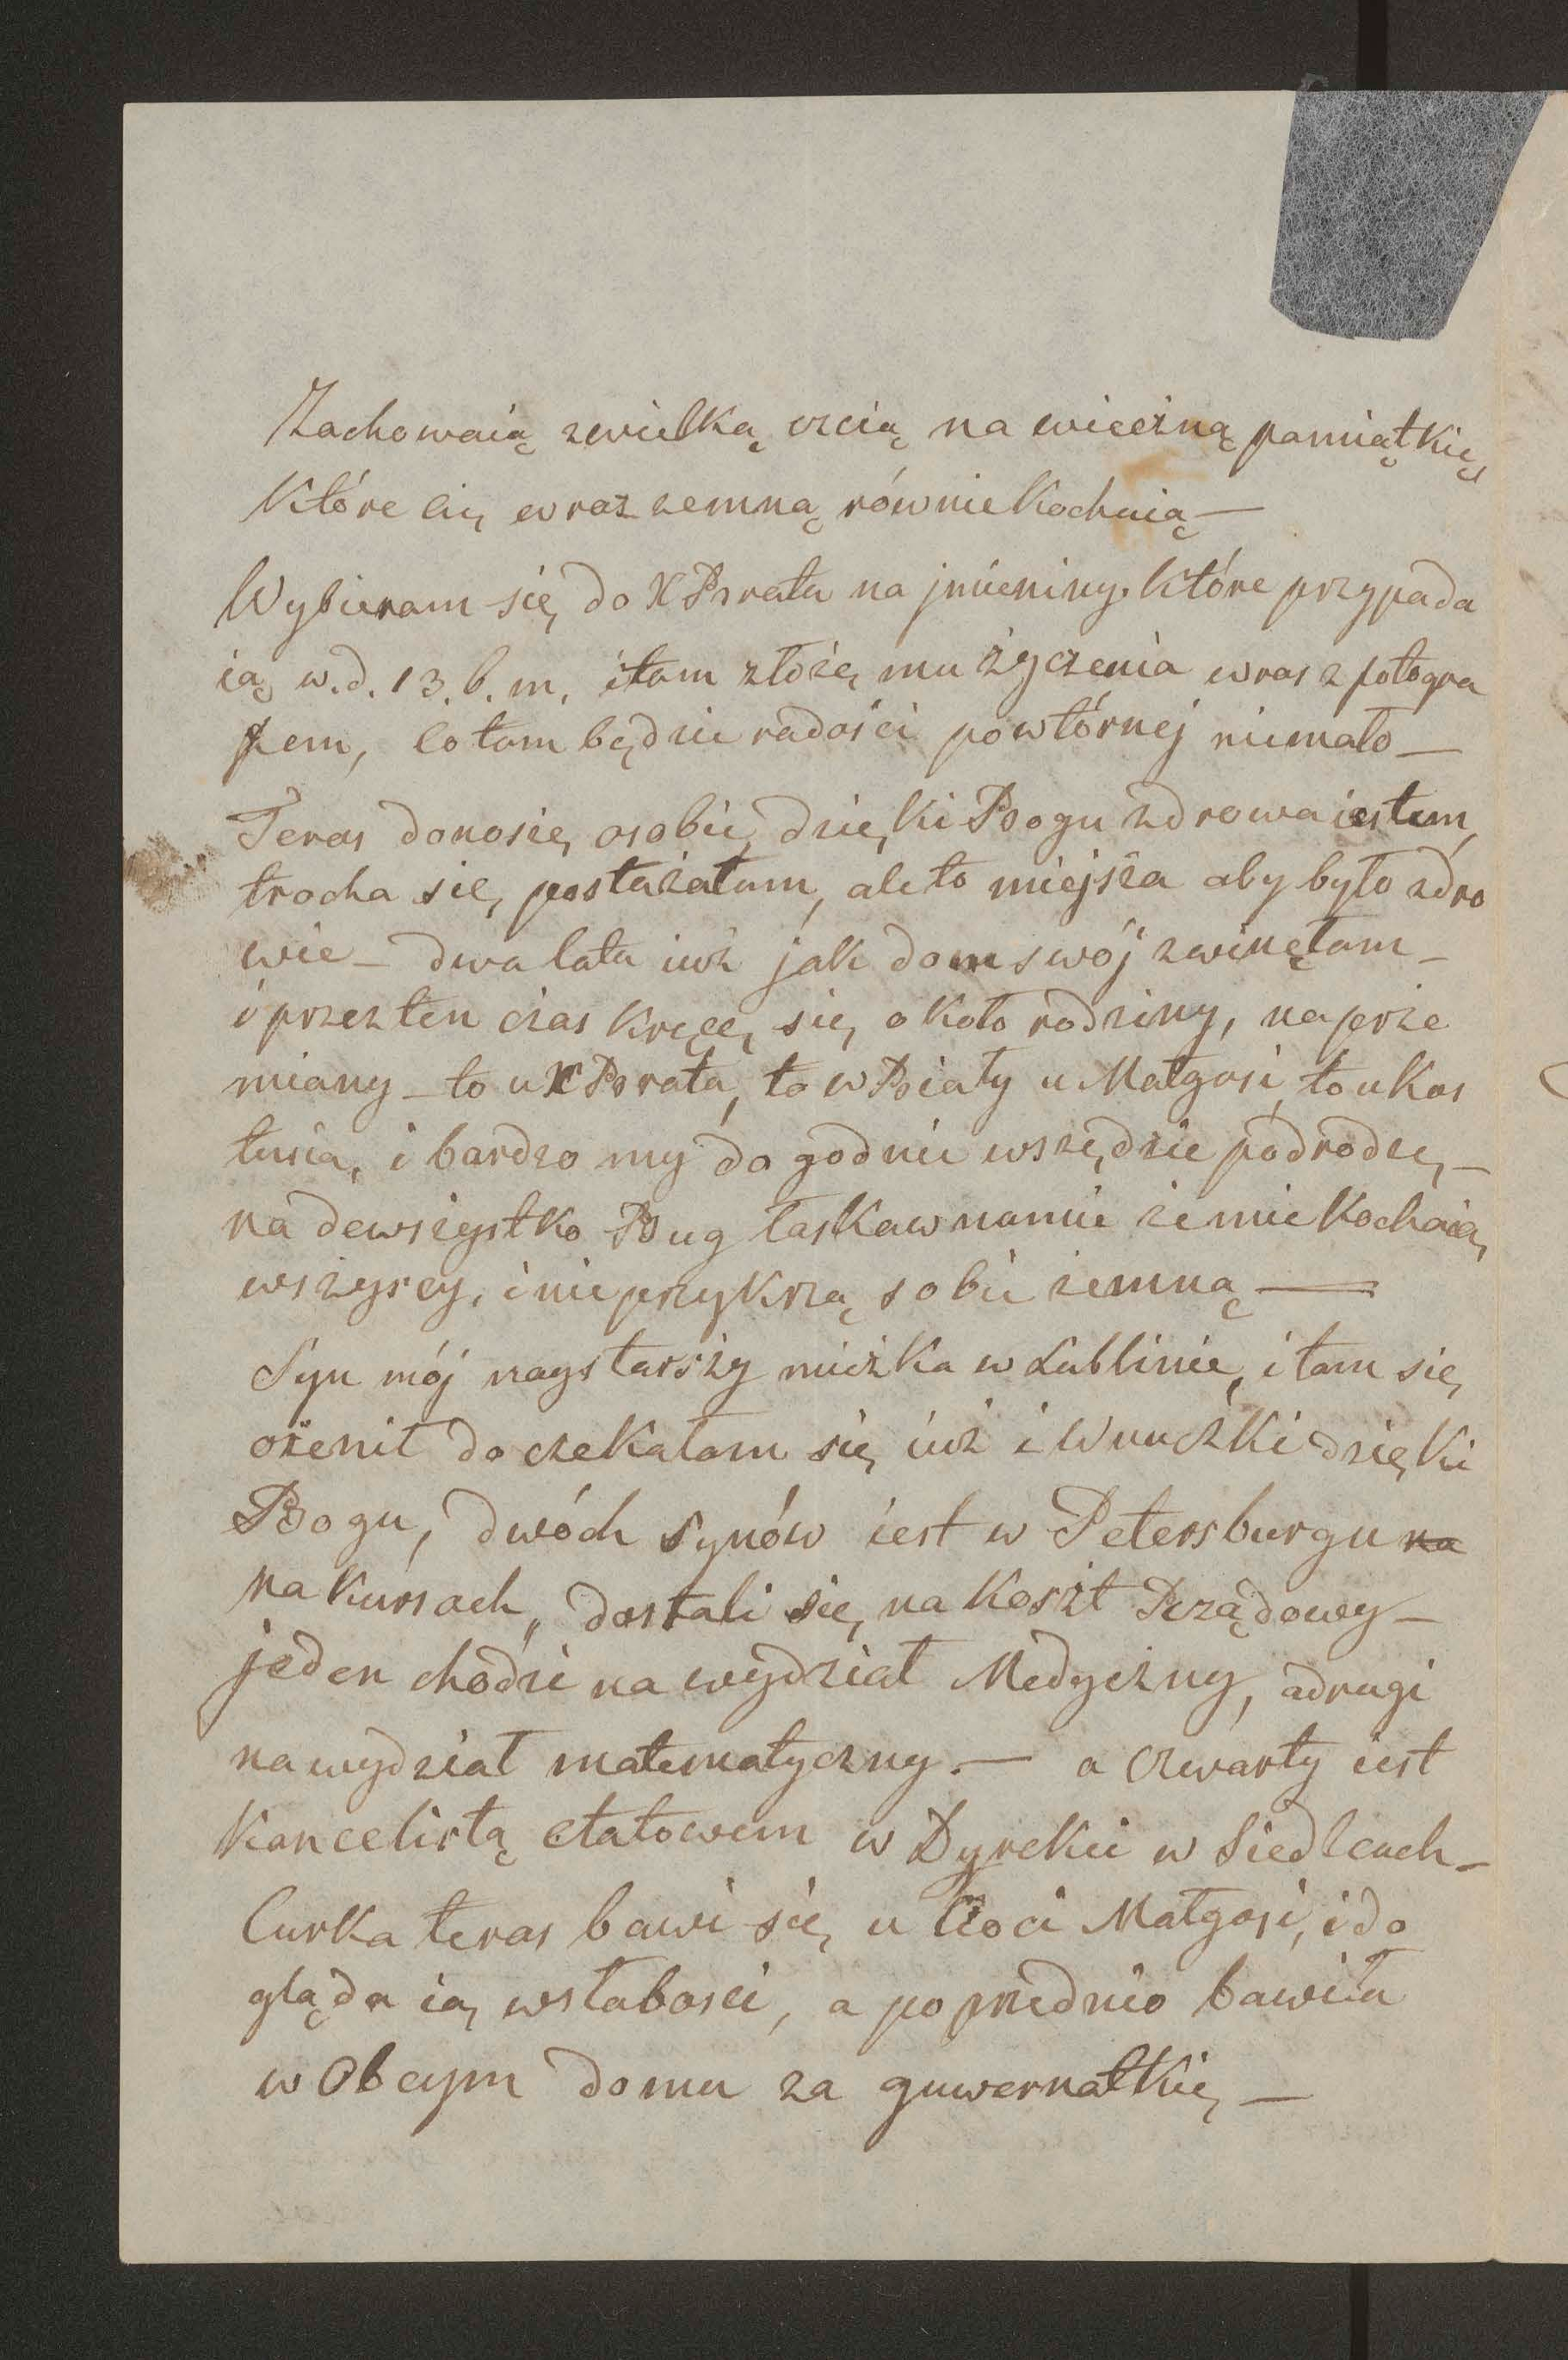 Zachowaią zwielką czcią na wiecżną pamiątkię
które cię wraz zemną równie kochaią —
Wybieram się do X Brata na jmieniny. które przypada
ią w. d. 13. b. m. itam złożę mu życzenia wras z fotogra
fem, co tam będzie radości powtórnej niemało —
Teras donoszę osobie, dzięki Bogu zdrowa iestem,
trocha się postażałam, ale to miejsza aby było zdro
wie — dwa lata iuż jak dom swój zwinęłam —
i przez ten czas kręcę się około rodziny, naprze
miany — to u X Brata, to w Biały u Małgosi, to u Kos
tusia, i bardzo my do godnie wszędzie podrodze, —
na dewsżystko Bug łaskaw namie że mie kochaią,
wszyscy, i nie przykrzą sobie zemną —
Syn mój naystarszy mieżka w Lublinie, i tam się
ożenił do czekałam się iuż i Wnuczki dzięki
Bogu, dwóch synów iest w Petersburgu na
na kursach, dostali się na koszt Rządowy —
jeden chodzi na wydział Medyczny, adrugi
na wydział matematyczny. — a Czwarty iest
kancelistą etatowem w Dyrekcii w Siedlcach —
Curka teras bawi się u Cioci Małgosi, i do
gląda ią wsłabosci, a poprzednio bawiła
w Obcym domu za guwernatkię —